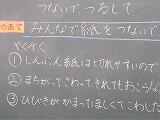 つないで、つるして
めあて みんなで紙をつないで、
やくそく
①しんぶん紙は切れやすいので
②まちがってさわってきれてもおこらな
③ひびきがかまってほしくてこわした